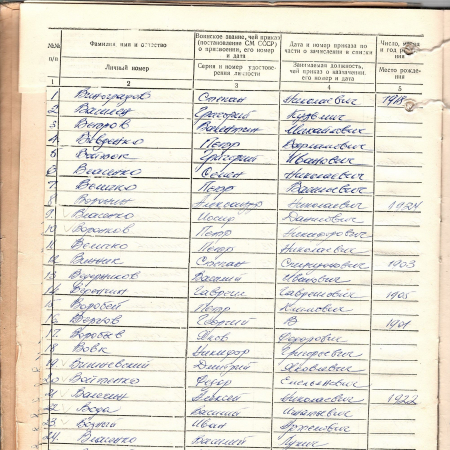 №№ п/п
Фамилия имя и отчество
Личный номер
Воинское звание, чей приказ (постановление СМ СССР) о присвоении, его номер и дата
Серия и номер удостоверения личности
Дата и номер приказа по части о зачислении в списки
Занимаемая должность, чей приказ о назначении, его номер и дата
Число, месяц и год рож
Место рождения
1 2 3 4 5
1. Виноградов Степан Николаевич 1918
2 Григорий
3 Ветров Валентин Михайлович
4. Петр
5 Войтюк Григорий Иванович
6 Власенко Семен Николаевич
7 Величко Петр Васильевич
8 Александр Николаевич 1924
9 Власенко Иосиф Данилович
10 Воронков Петр Никифорович
11 Величко Петр Николаевич
12 Винник Степан Спиридонович 1903
13 Ведерников Василий Иванович
14 Воронин Гаврил Гаврилович 1905
15 Воробей Петр
16 Георгий В 1901
17 Воробьев Яков Федорович
18 Вовк Никифор Трифонович
19 Вишневский Дмитрий
20 Войтенко Федор Емельянович
21 Алексей Николаевич 1922
22 Вода Василий Игнатьевич
23 Иван
24. Власенко Василий Лукич